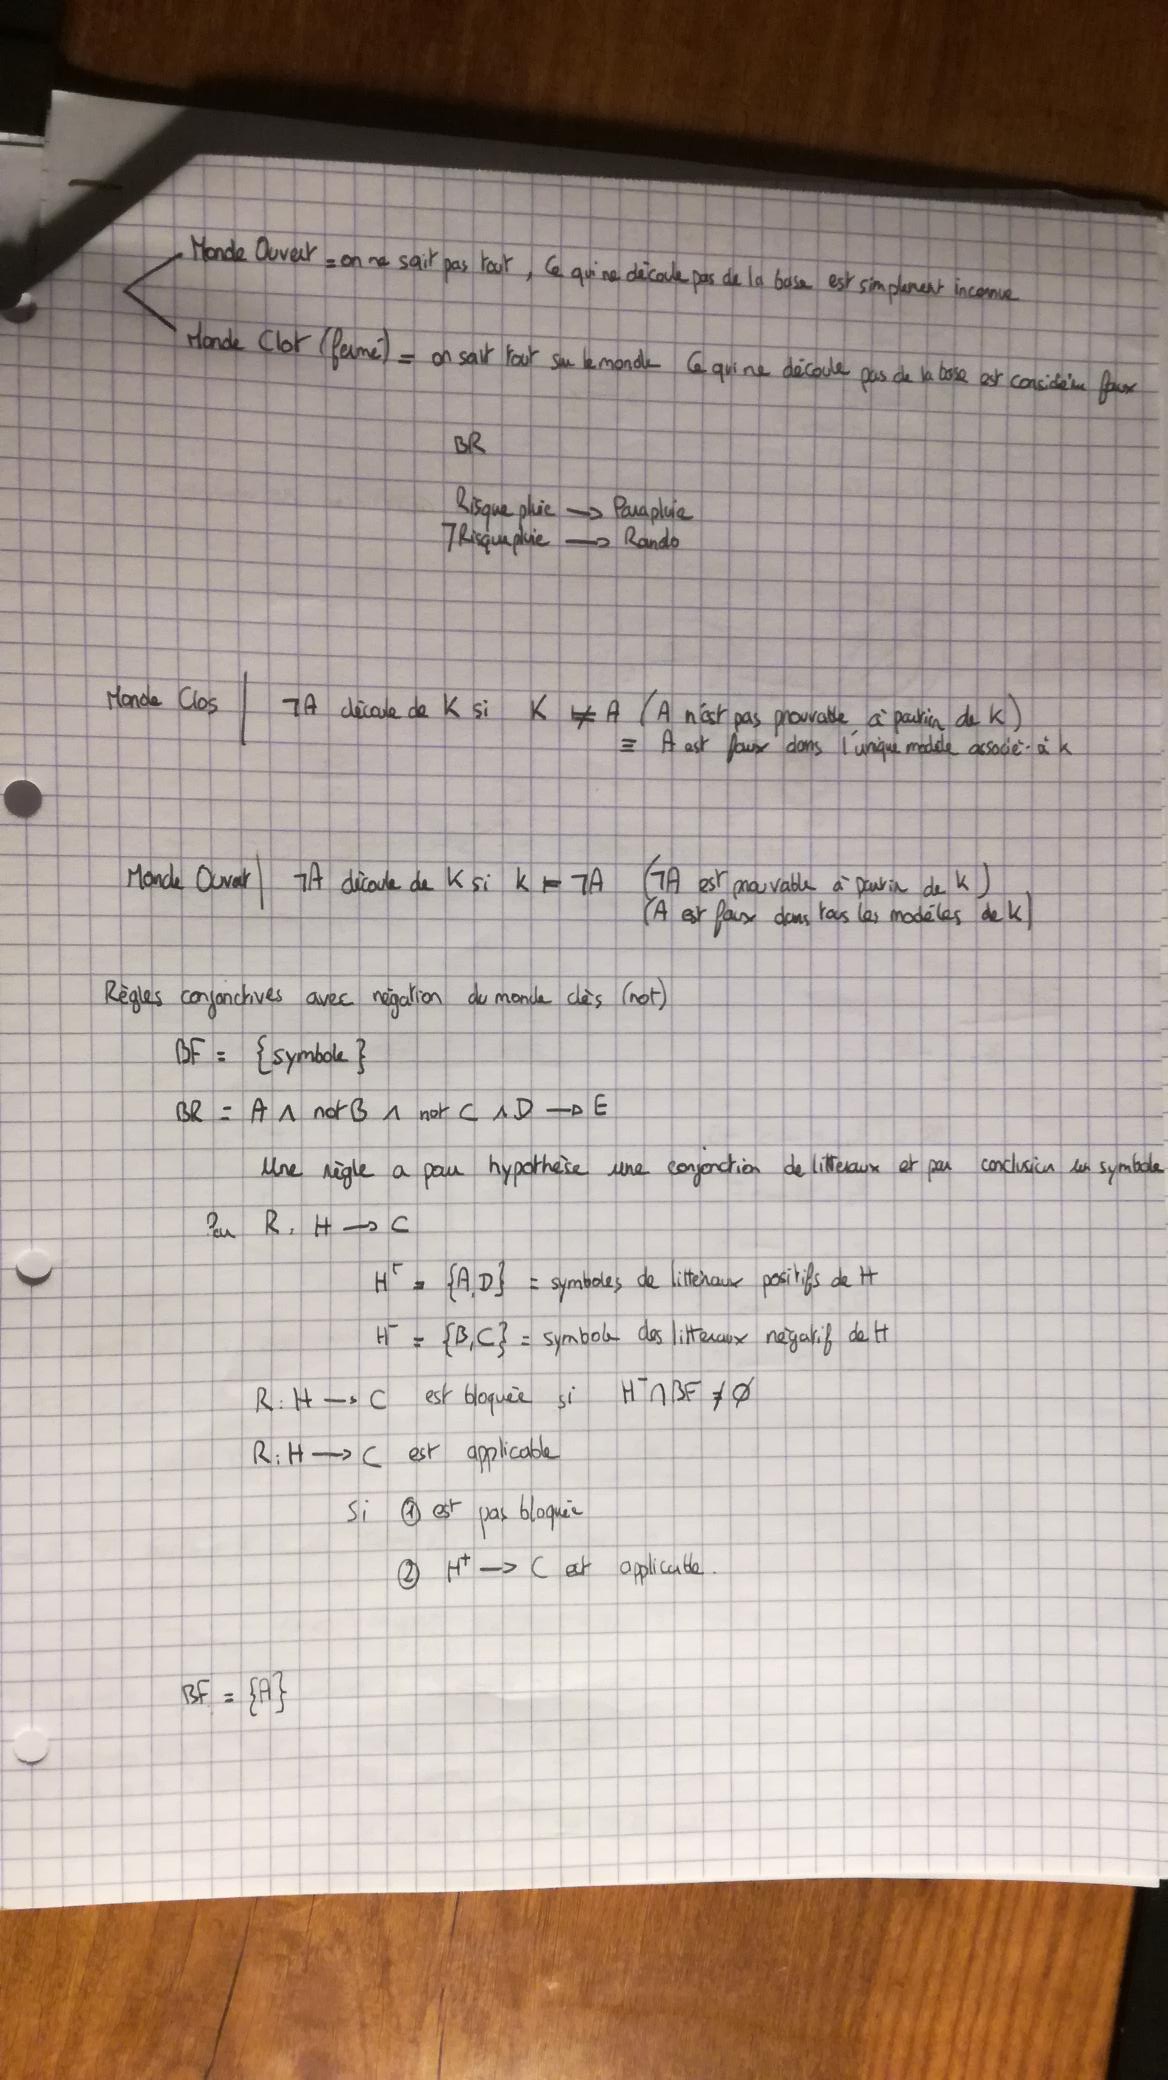 Monde Ouvert = on ne sait pas tout, Ce qui ne découle pas de la base est simplement inconnue
Monde Clot (fermé) = on sait tout sur le monde Ce qui ne découle pas de la base est considéru faux
BR
Risque pluie → Parapluie
¬Risque pluie → Rando
Monde Clos | ¬A découle de K si K ⊭ A (A n'est pas prouvable à partir de K)
≡ A est faux dans l'unique modèle associé à k
Monde Ouvert | ¬A découle de K si k ⊨ ¬A (¬A est prouvable à partir de k)
(A est faux dans tous les modèles de k)
Règles conjonctives avec négation du monde clos (not)
BF = {symbole}
BR = A ∧ not B ∧ not C ∧ D → E
Une règle a pour hypothèse une conjonction de litteraux et par conclusion un symbole
Pour R: H → C
H⁺ = {A,D} = symboles de litteraux positifs de H
H⁻ = {B,C} = symbole des litteraux négatif de H
R: H → C est bloquée si H⁻ ∩ BF ≠ ∅
R: H → C est applicable
Si ① est pas bloquée
② H⁺ → C est applicable.
BF = {A}